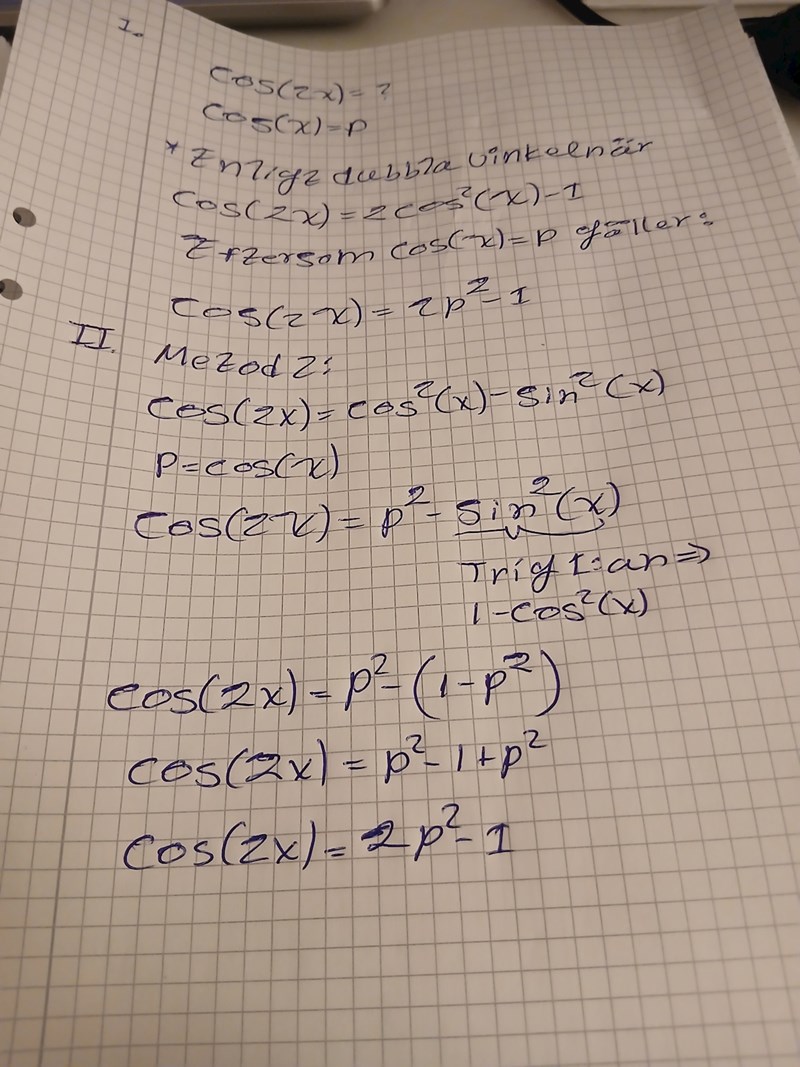 1.
cos(2x) = ?
cos(x) = p
* Enligt dubbla vinkeln är
cos(2x) = 2cos²(x) - 1
Eftersom cos(x) = p gäller:
cos(2x) = 2p² - 1
II. Metod 2:
cos(2x) = cos²(x) - sin²(x)
p = cos(x)
cos(2x) = p² - sin²(x)
Trig 1:an ⇒
1 - cos²(x)
cos(2x) = p² - (1 - p²)
cos(2x) = p² - 1 + p²
cos(2x) = 2p² - 1